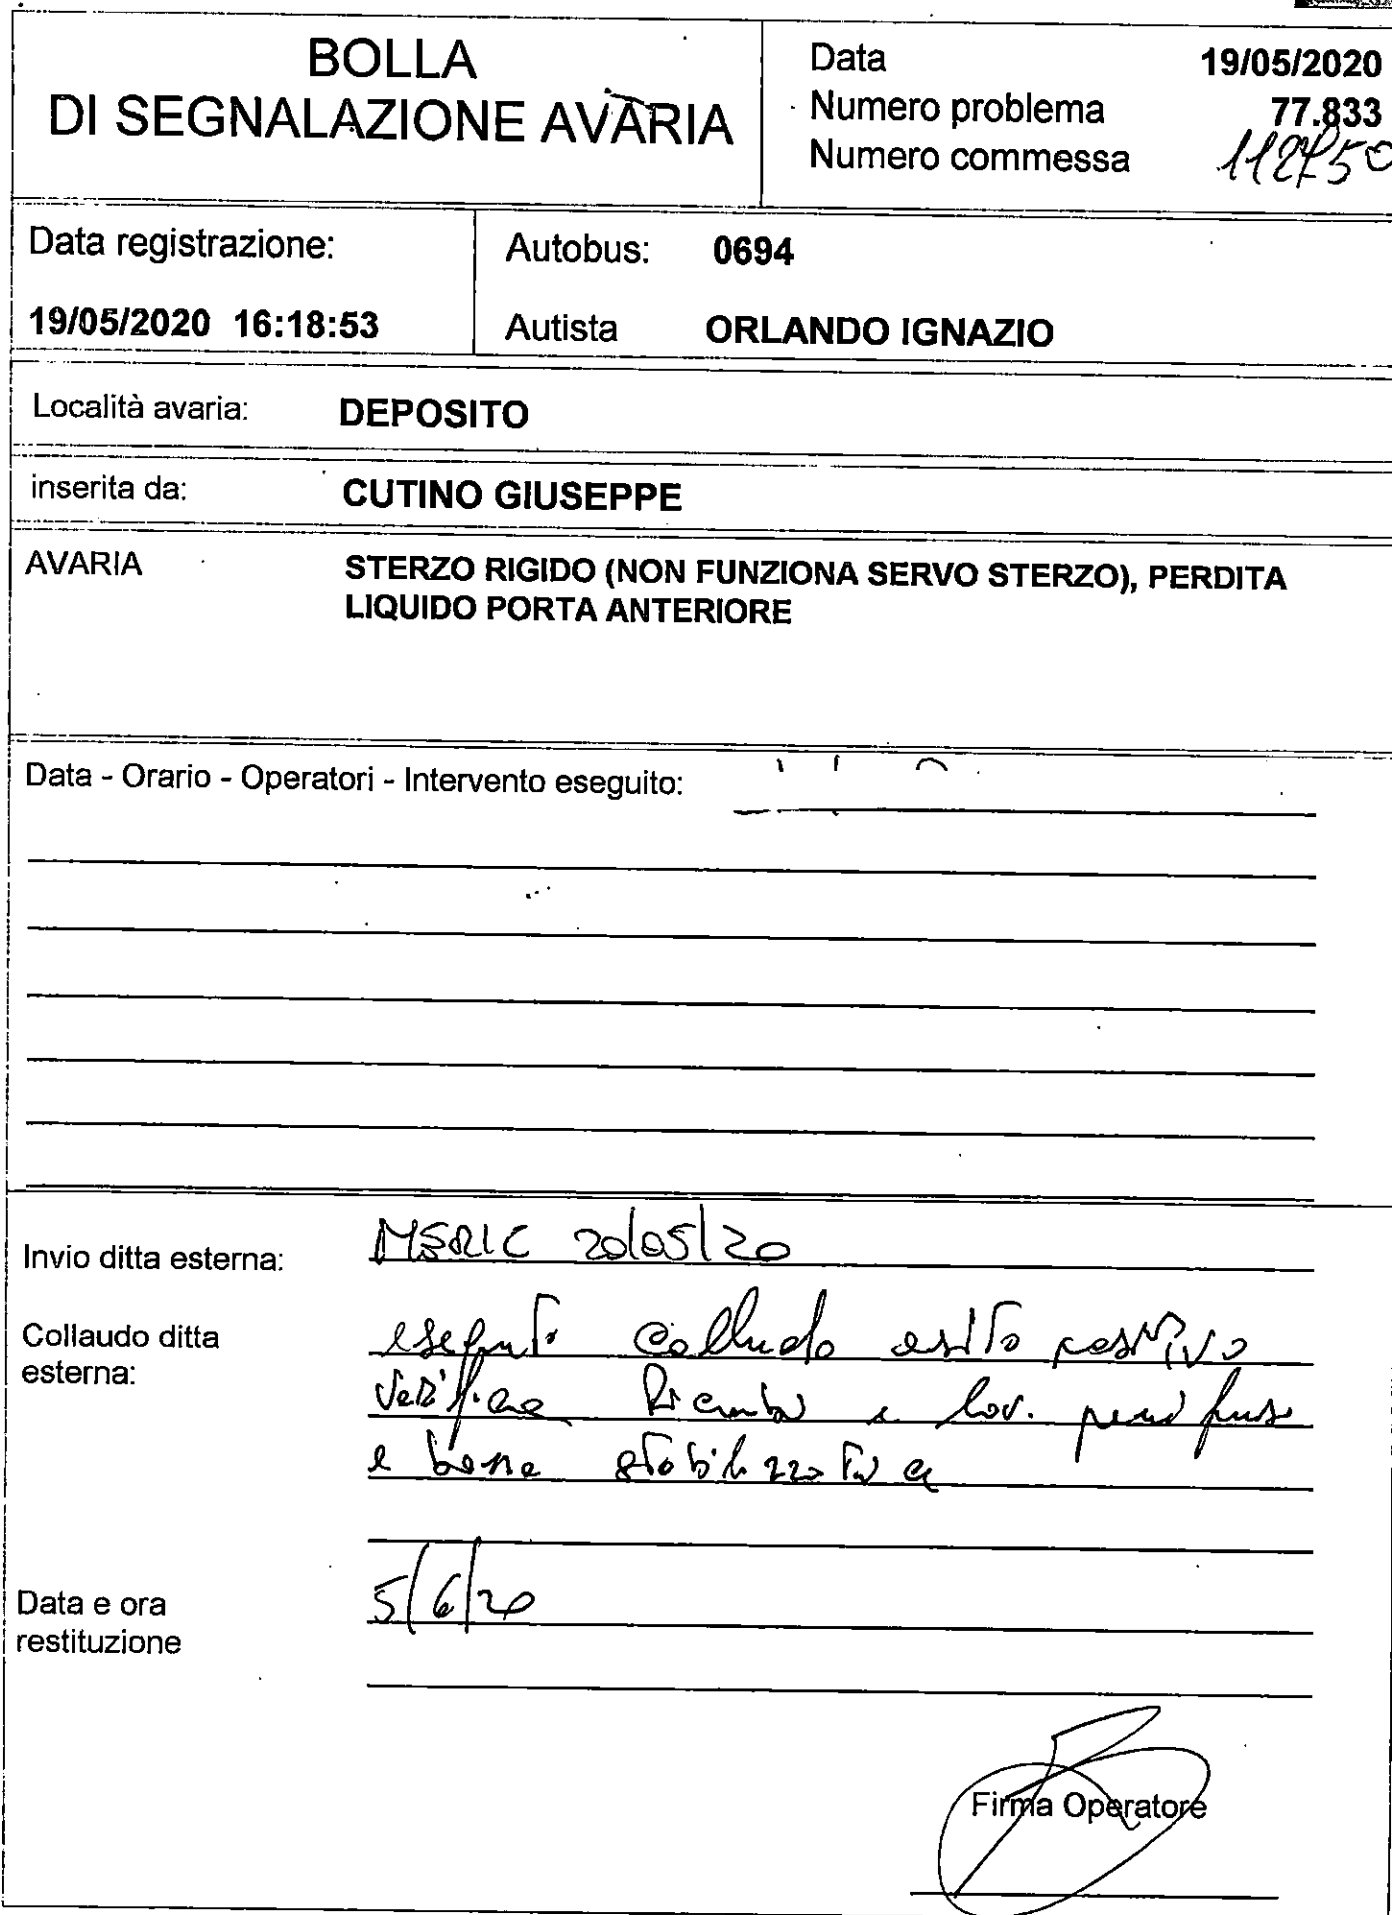 BOLLA
DI SEGNALAZIONE AVARIA
Data 19/05/2020
Numero problema 77.833
Numero commessa 112750
Data registrazione:
19/05/2020 16:18:53
Autobus: 0694
Autista ORLANDO IGNAZIO
Località avaria: DEPOSITO
inserita da: CUTINO GIUSEPPE
AVARIA STERZO RIGIDO (NON FUNZIONA SERVO STERZO), PERDITA
LIQUIDO PORTA ANTERIORE
Data - Orario - Operatori - Intervento eseguito:
Invio ditta esterna: 20/05/20
Collaudo ditta
esterna:
collaudo esito positivo
e lov.
e stabilizzatrice
Data e ora
restituzione
5/6/20
Firma Operatore